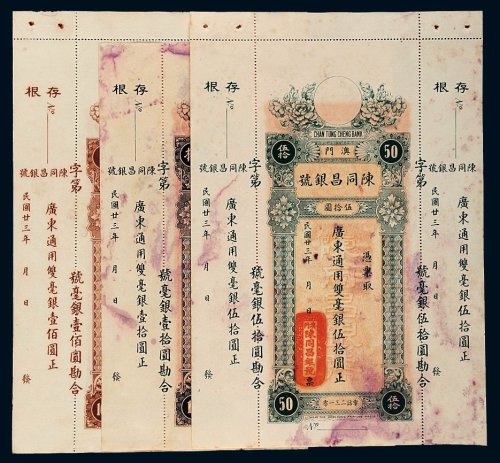 存根
No
陳同昌銀號
廣東通用雙毫銀壹佰圓正
民國廿三年 月 日 發
字第 號毫銀壹佰圓勘合
存根
No
陳同昌銀號
廣東通用雙毫銀壹拾圓正
民國廿三年 月 日 發
字第 號毫銀壹拾圓勘合
存根
No
陳同昌銀號
廣東通用雙毫銀伍拾圓正
民國廿三年 月 日 發
字第 號毫銀伍拾圓勘合
CHAN TUNG CHENG BANK
伍拾
澳門
50
陳同昌銀號
伍拾圓
憑票取
廣東通用雙毫銀伍拾圓正
民國廿三年 月 日 票
50
伍拾
No
字第 號毫銀伍拾圓勘合
存根
No
陳同昌銀號
廣東通用雙毫銀伍拾圓正
民國廿三年 月 日 發